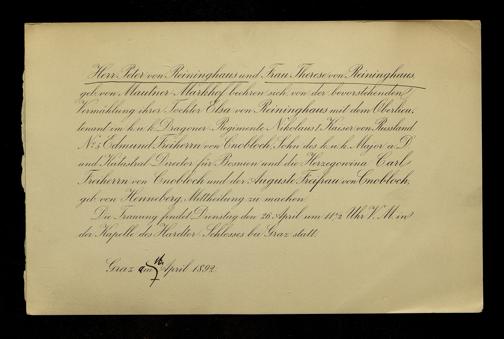 Herr Peter von Reininghaus und Frau Therese von Reininghaus,
geb. von Mautner-Markhof beehren sich von der bevorstehenden
Vermählung ihrer Tochter Elsa von Reininghaus mit dem Oberlieu,
tenant im k. u. k. Dragoner-Regimente Nikolaus I Kaiser von Russland
No. 5 Edmund Freiherrn von Cnobloch, Sohn des k. u. k. Major a. D.
und Katastral-Director für Bosnien und die Herzegowina Carl
Freiherrn von Cnobloch und der Auguste Freifrau von Cnobloch,
geb. von Henneberg, Mittheilung zu machen.
Die Trauung findet Dienstag den 26. April um 11 1/2 Uhr V. M. in
der Kapelle des Hardter-Schlosses bei Graz statt.
Graz am April 1892.